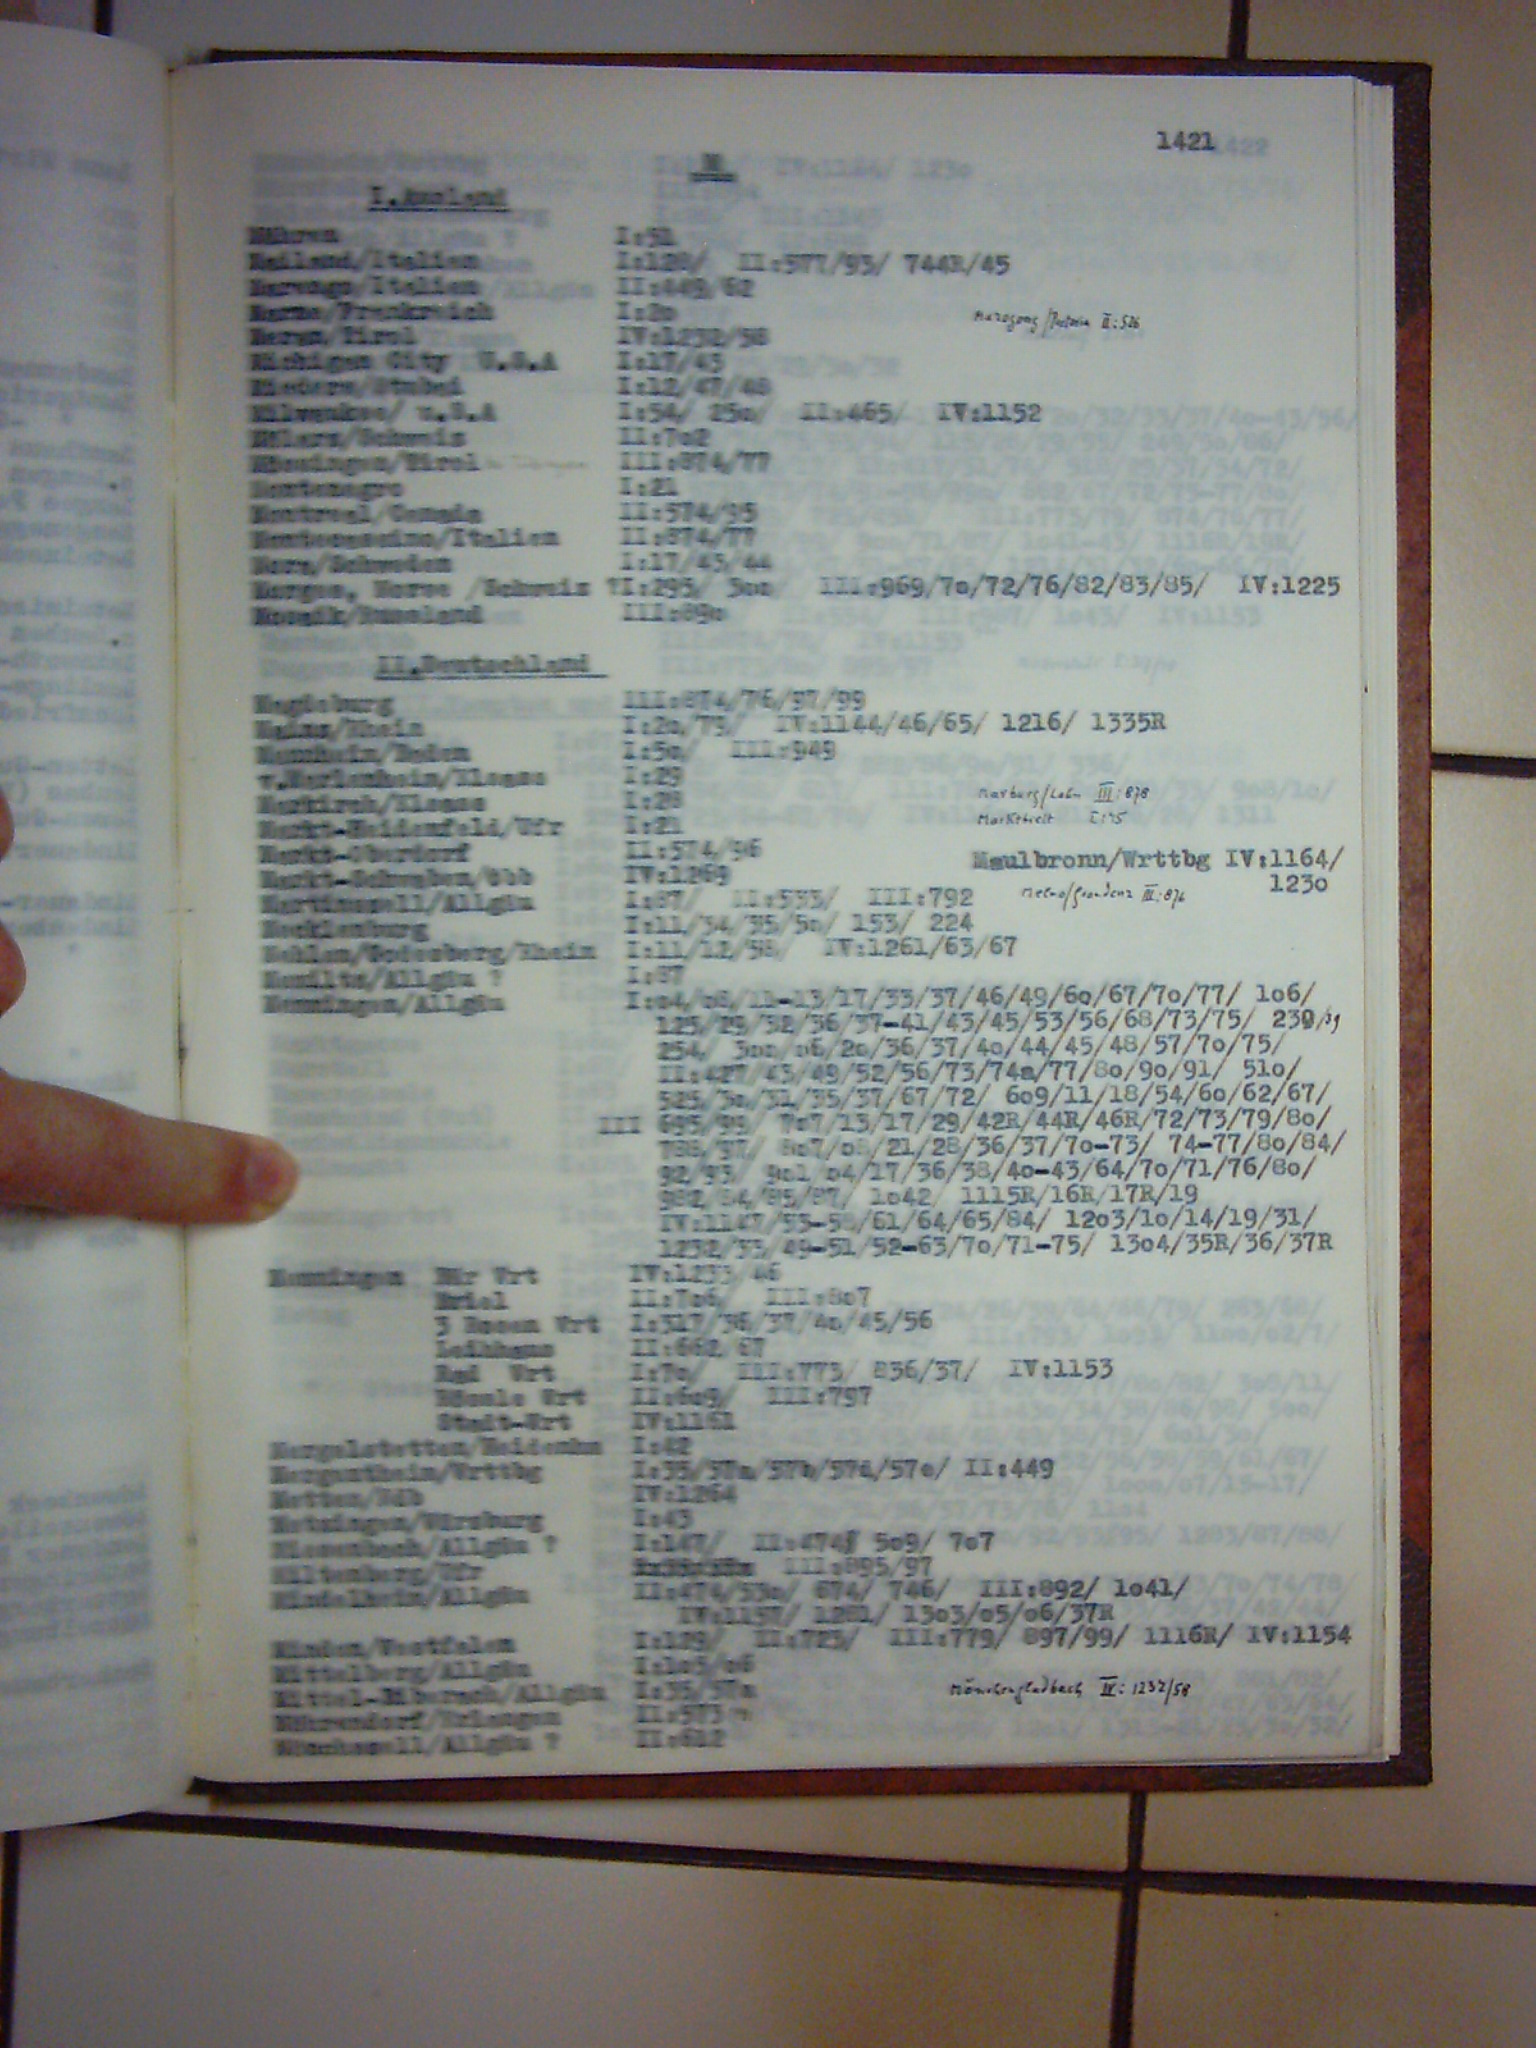 1421
M
I. Ausland
Mähren I:51
Mailand/Italien I:128/ II:577/93/ 744R/45
Marengo/Italien II:449/62
Marne/Frankreich I:20
Meran/Tirol IV:1232/58
Michigan City U.S.A I:17/43
Mieders/Stubai I:12/47/48
Milwaukee/ U.S.A I:54/ 250/ II:465/ IV:1152
/Schweiz II:702
/Tirol III:874/77
Montenegro I:21
Montreal/Canada II:574/95
Montecassino/Italien II:874/77
Mora/Schweden I:17/43/44
Morges, Morse /Schweiz ? I:295/ 300 III:969/70/72/76/82/83/85/ IV:1225
/Russland III:890
II. Deutschland
Magdeburg III:874/76/97/99
Mainz/Rhein I:20/79/ IV:1144/46/65/ 1216/ 1335R
Mannheim/Baden I:50/ III:949
v.Marlenheim/Elsass I:29
Markirch/Elsass I:28
Marburg/Lahn III:878
Markt-Heidenfeld/Ufr I:21
Markt-Oberdorf II:574/96
Maulbronn/Wrttbg IV:1164/
1230
Markt-Schwaben/Obb IV:1269
Martinszell/Allgäu I:87/ II:533/ III:792
Mecklenburg I:11/34/35/50/ 153/ 224
Mehlem/Godesberg/Rhein I:11/12/58/ IV:1261/63/67
/Allgäu ? I:87
Memmingen/Allgäu I:04/08/11-13/17/33/37/46/49/60/67/70/77/ 106/
125/29/32/36/37-41/43/45/53/56/68/73/75/ 230/39
254/ 300/06/20/36/37/40/44/45/48/57/70/75/
II:427/43/49/52/56/73/74a/77/80/90/91/ 510/
525/30/31/35/37/67/72/ 609/11/18/54/60/62/67/
III 695/99/ 707/13/17/29/42R/44R/46R/72/73/79/80/
788/97/ 807/08/21/28/36/37/70-73/ 74-77/80/84/
92/93/ 901/04/17/36/38/40-43/64/70/71/76/80/
982/84/85/87/ 1042/ 1115R/16R/17R/19
IV:1147/53-58/61/64/65/84/ 1203/10/14/19/31/
1232/33/49-51/52-63/70/71-75/ 1304/35R/36/37R
Memmingen Bär Wrt IV:1233/46
II:706/ III:807
3 Rosen Wrt I:317/36/37/40/45/56
Leihhaus II:662/67
Rad Wrt I:70/ III:773/ 836/37/ IV:1153
Rössle Wrt II:609/ III:797
Stadt-Wrt IV:1161
Mergelstetten/Heidenhm I:42
Mergentheim/Wrttbg I:35/57a/57b/57d/57e/ II:449
Metten/Ndb IV:1264
/Würzburg I:43
/Allgäu ? I:147/ II:474/ 509/ 707
Miltenberg/Ufr III:895/97
Mindelheim/Allgäu II:474/530/ 674/ 746/ III:892/ 1041/
IV:1157/ 1281/ 1303/05/06/37R
Minden/Westfalen I:129/ II:725/ III:779/ 897/99/ 1116R/ IV:1154
Mittelberg/Allgäu I:105/06
Mittel-Biberach/Allgäu I:35/57a
Mönchengladbach IV:1232/58
Möhrendorf/Erlangen II:573
/Allgäu ? II:612